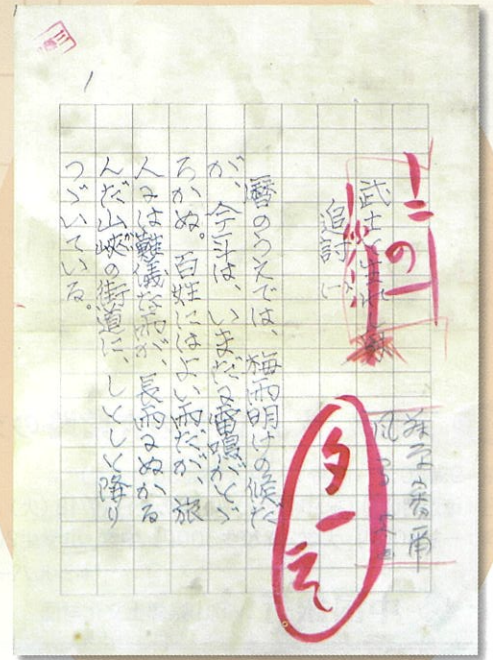 十二の一
追討
暦のうえでは、梅雨明けの候だ
が、今年は、いまだに雷鳴がとゞ
ろかぬ。百姓にはよい雨だが、旅
人には難儀な雨が、長雨にぬかる
んだ山峡の街道に、しとしと降り
つゞいている。